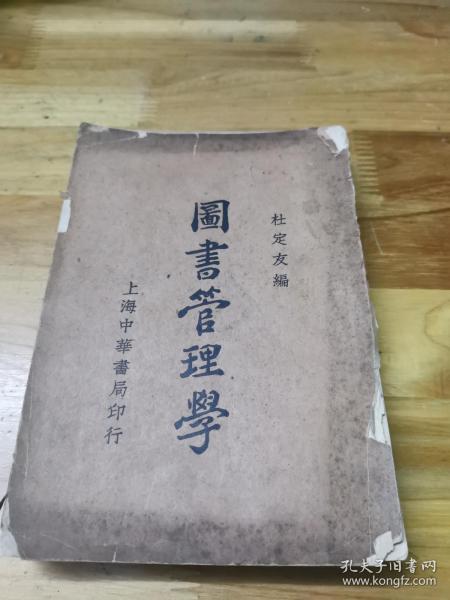 杜定友編
圖書管理學
上海中華書局印行
孔夫子旧书网
www.kongfz.com